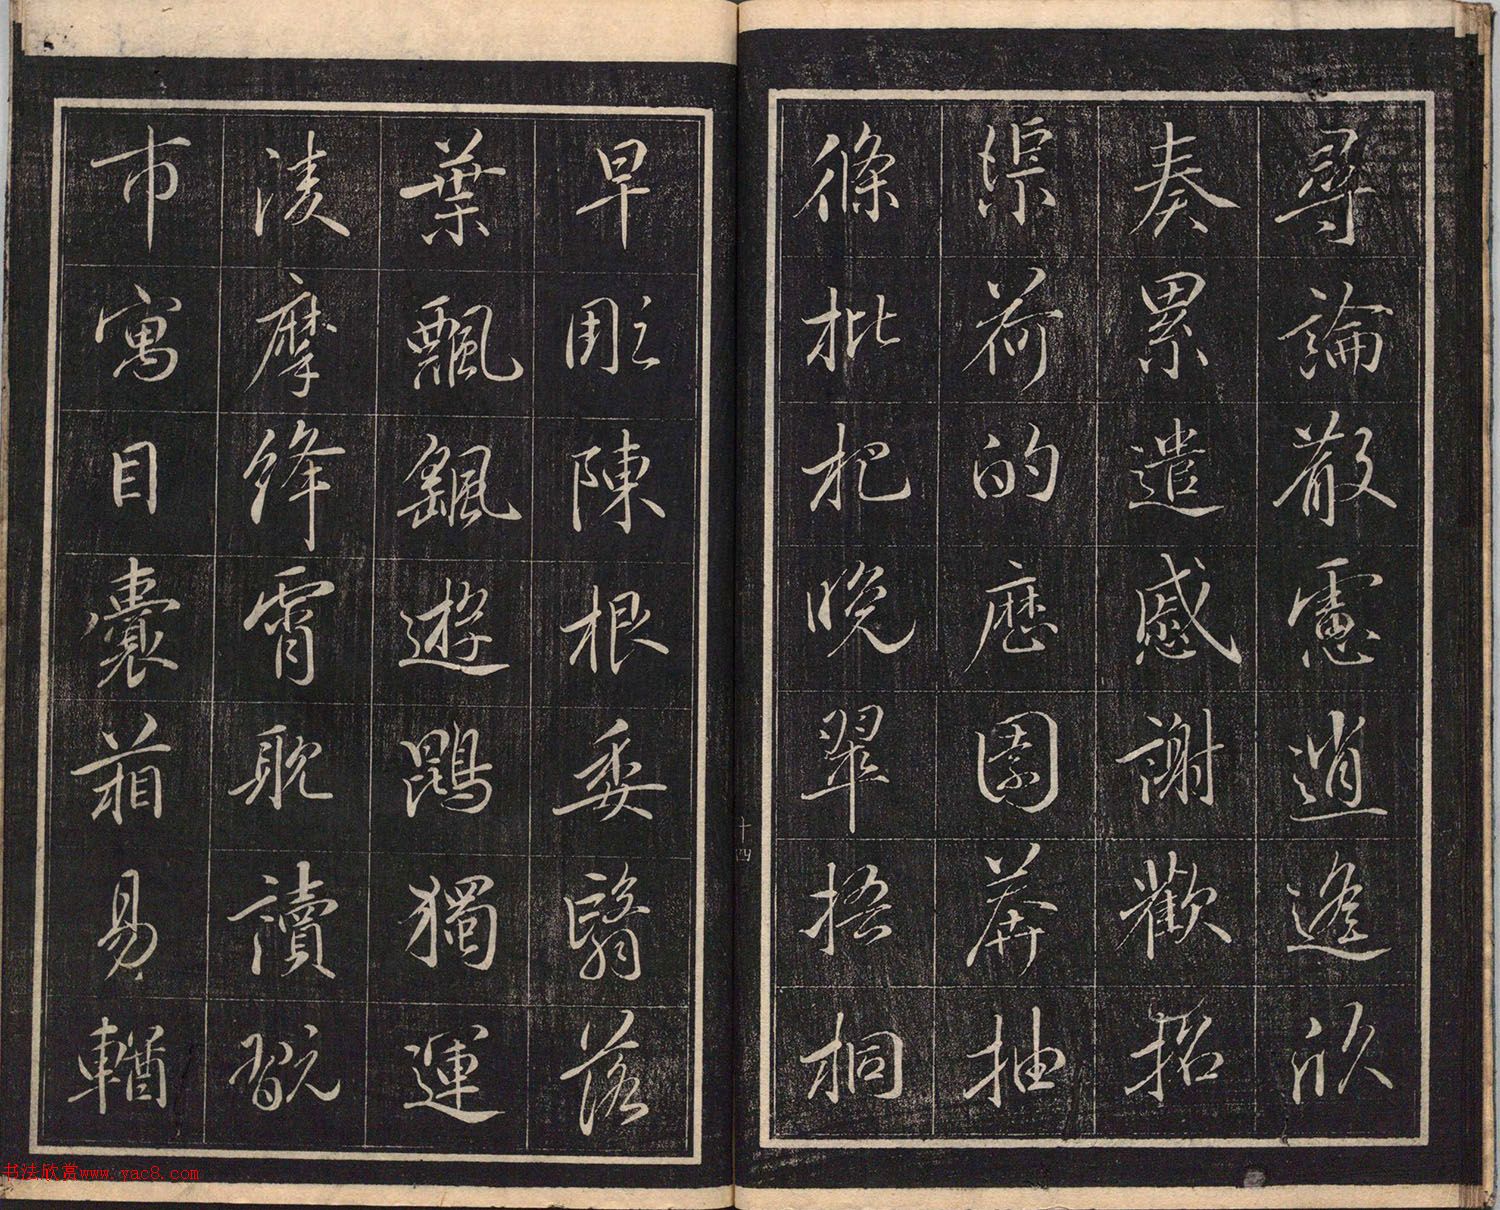 尋論散慮逍遙欣
奏累遣慼謝歡招
渠荷的歷園莽抽
條枇杷晚翠梧桐
早彫陳根委翳落
葉飄颻遊鵾獨運
淩摩絳霄耽讀翫
市寓目囊葙易輶
十四
书法欣赏www.yac8.com